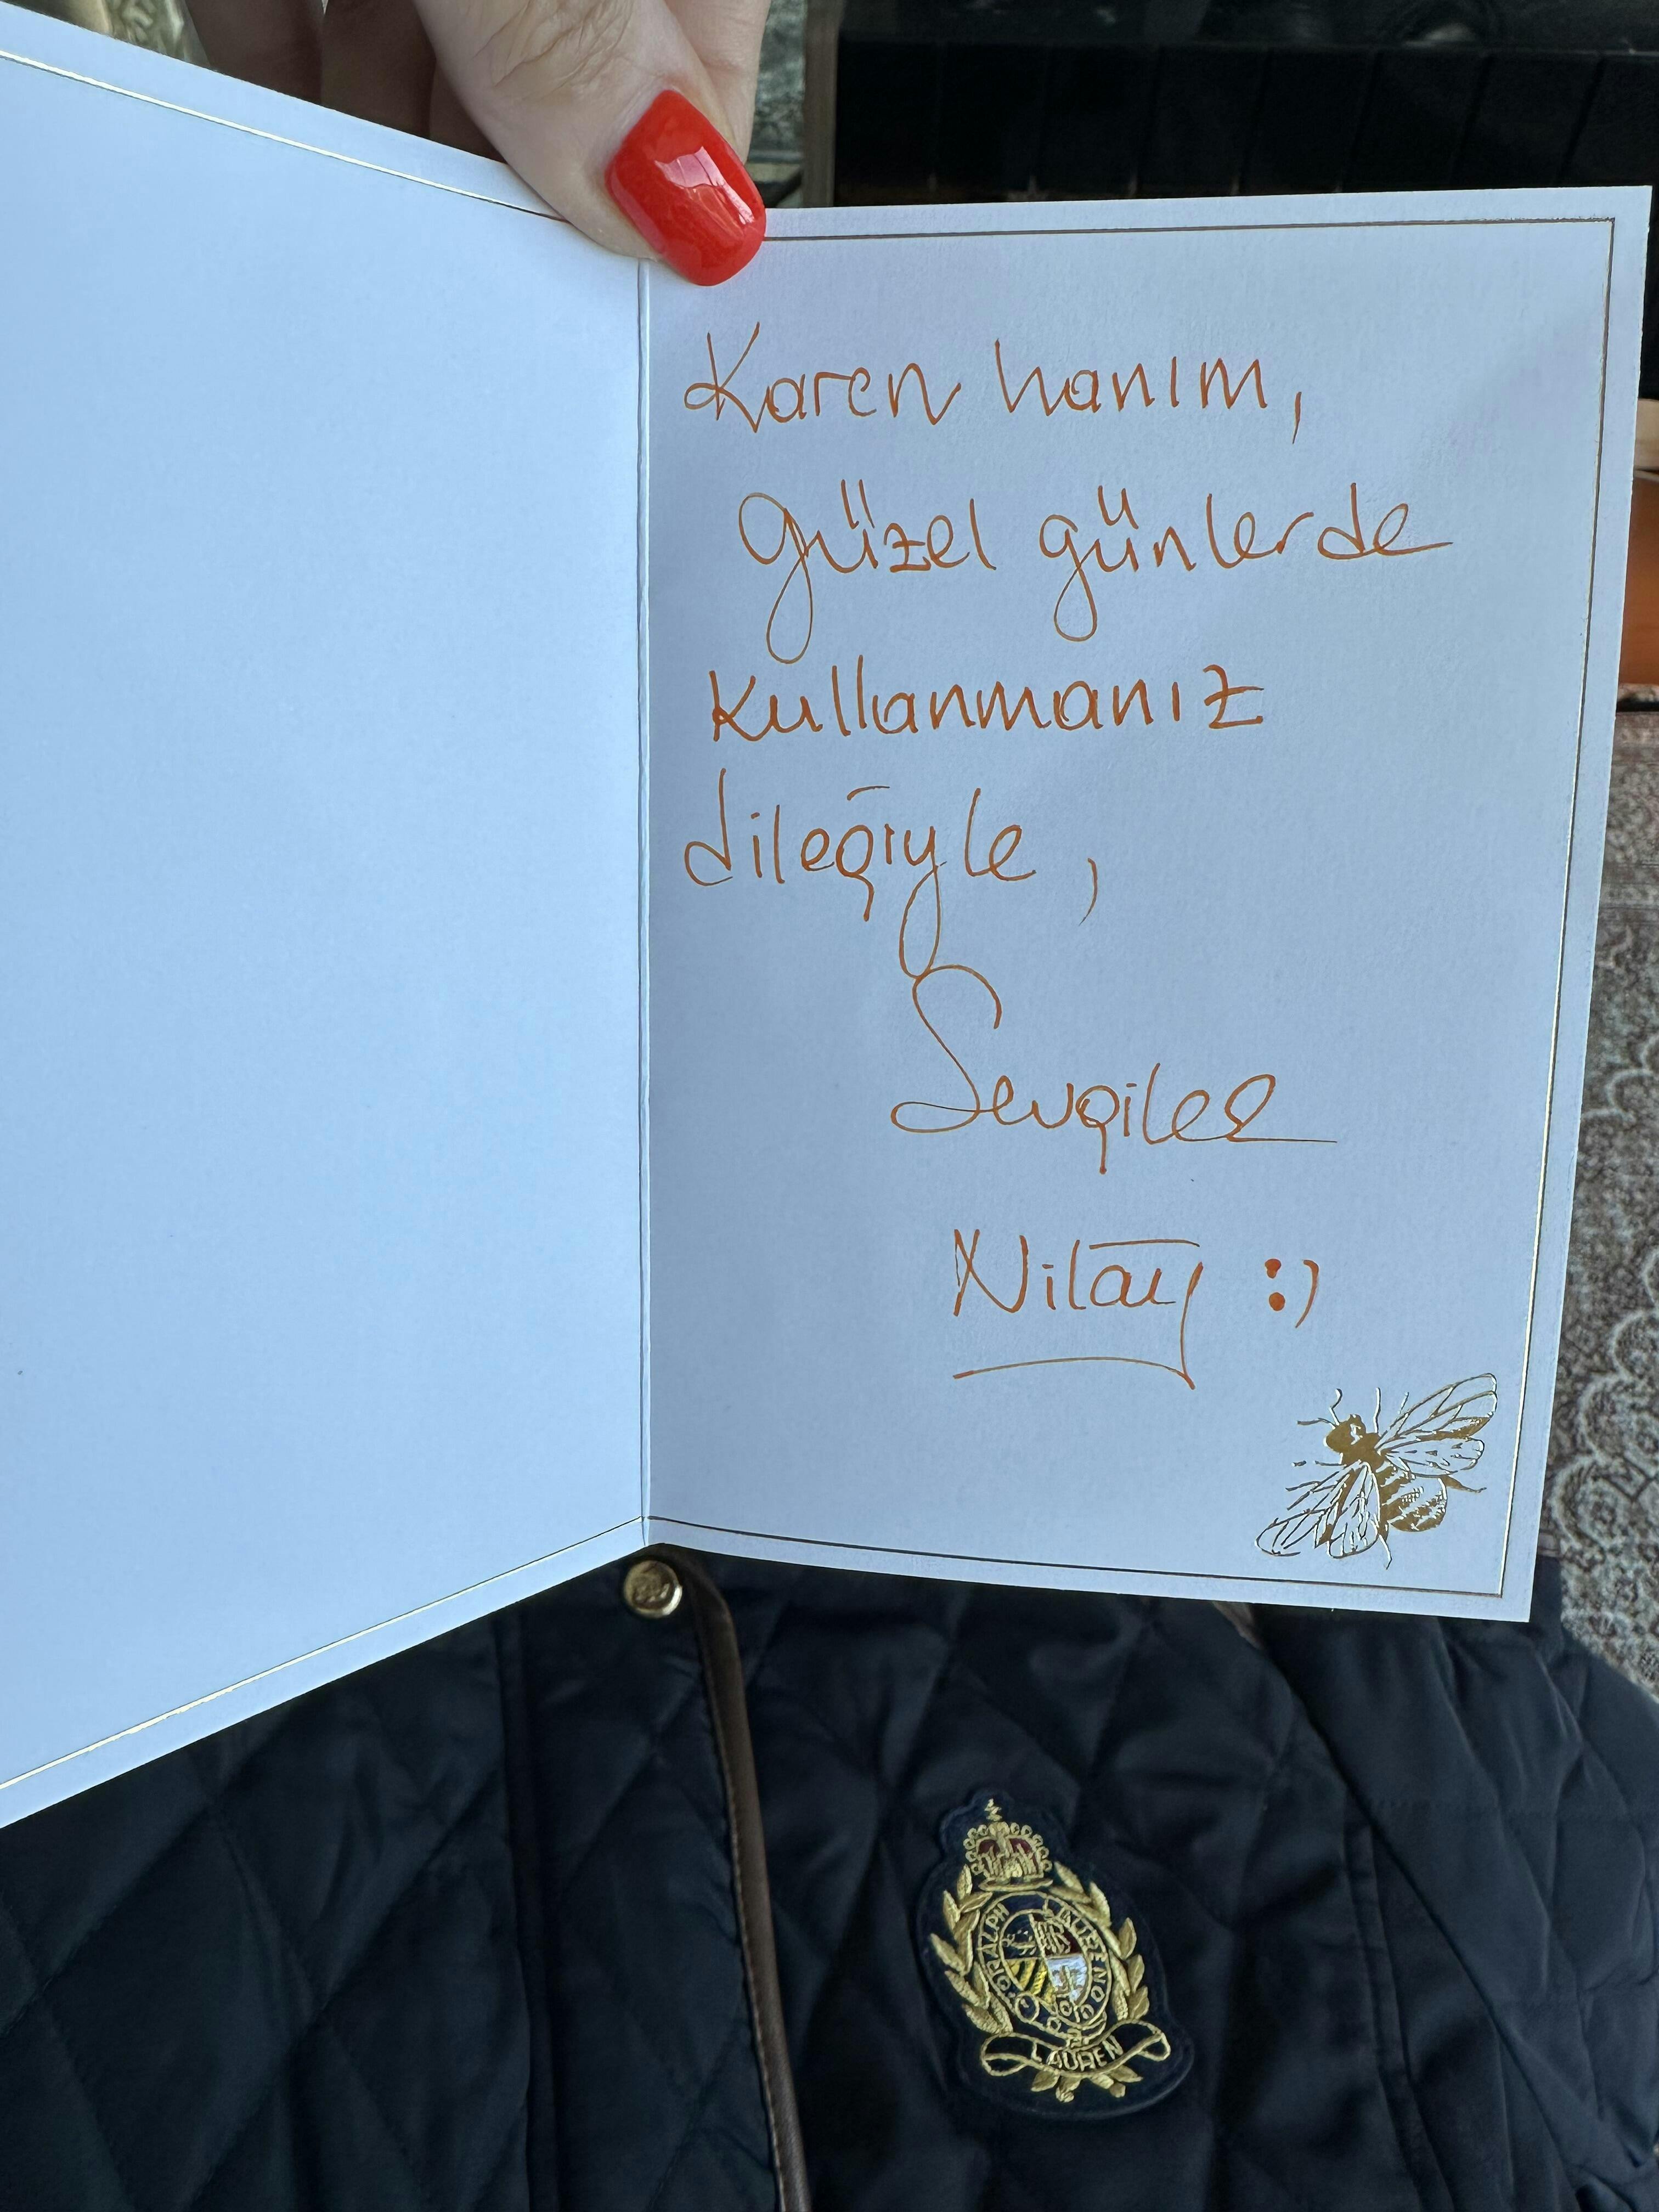 Karen hanım,
güzel günlerde
kullanmanız
dileğiyle,
Sevgiler
Nilay :)
RALPH LAUREN
LAUREN